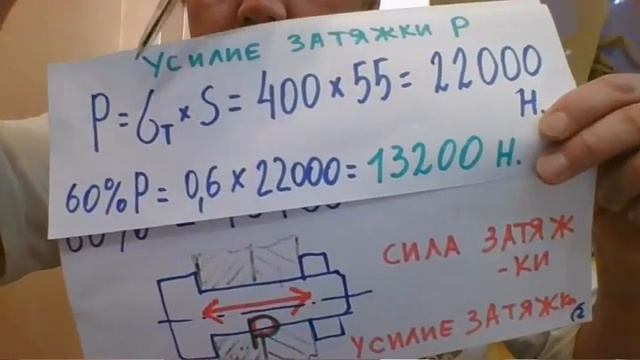 УСИЛИЕ ЗАТЯЖКИ P
P = Gт × S = 400 × 55 = 22000
Н.
60% P = 0,6 × 22000 = 13200 Н.
60%
СИЛА ЗАТЯЖ
-КИ
P
УСИЛИЕ ЗАТЯЖК